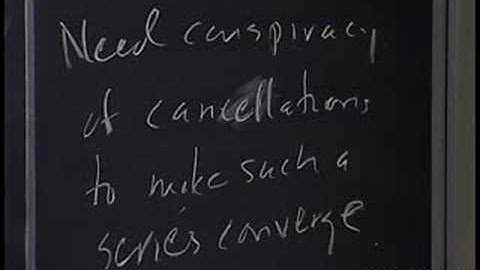 Need conspiracy
of cancellations
to make such a
series converge.